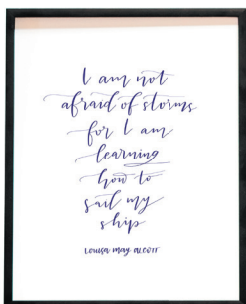 I am not
afraid of storms
for I am
learning
how to
sail my
ship
Louisa may alcott